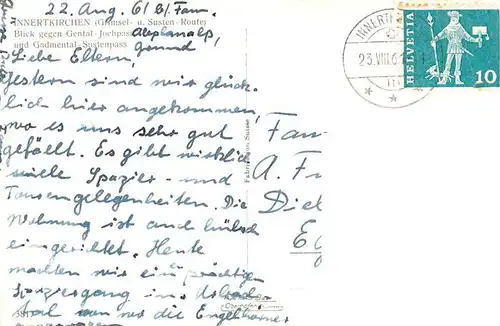 22. Aug. 61 b/ Fam.
INNERTKIRCHEN (Grimsel- u. Susten-Route)
Blick gegen Gental-Jochpass
und Gadmental-Sustenpass
Grund
Liebe Eltern,
gestern sind wir glück-
lich hier angekommen,
wo es uns sehr gut
gefällt. Es gibt wirklich
viele Spazier- und
Tourengelegenheiten. Die
Wohnung ist auch hübsch
eingerichtet. Heute
machten wir ein prächtigen
Spaziergang ins Urbach-
tal von wo die Engelhörner
INNERT
23.VIII.6
HELVETIA
10
Fabrication Suisse
Fam
A. F
Die
E